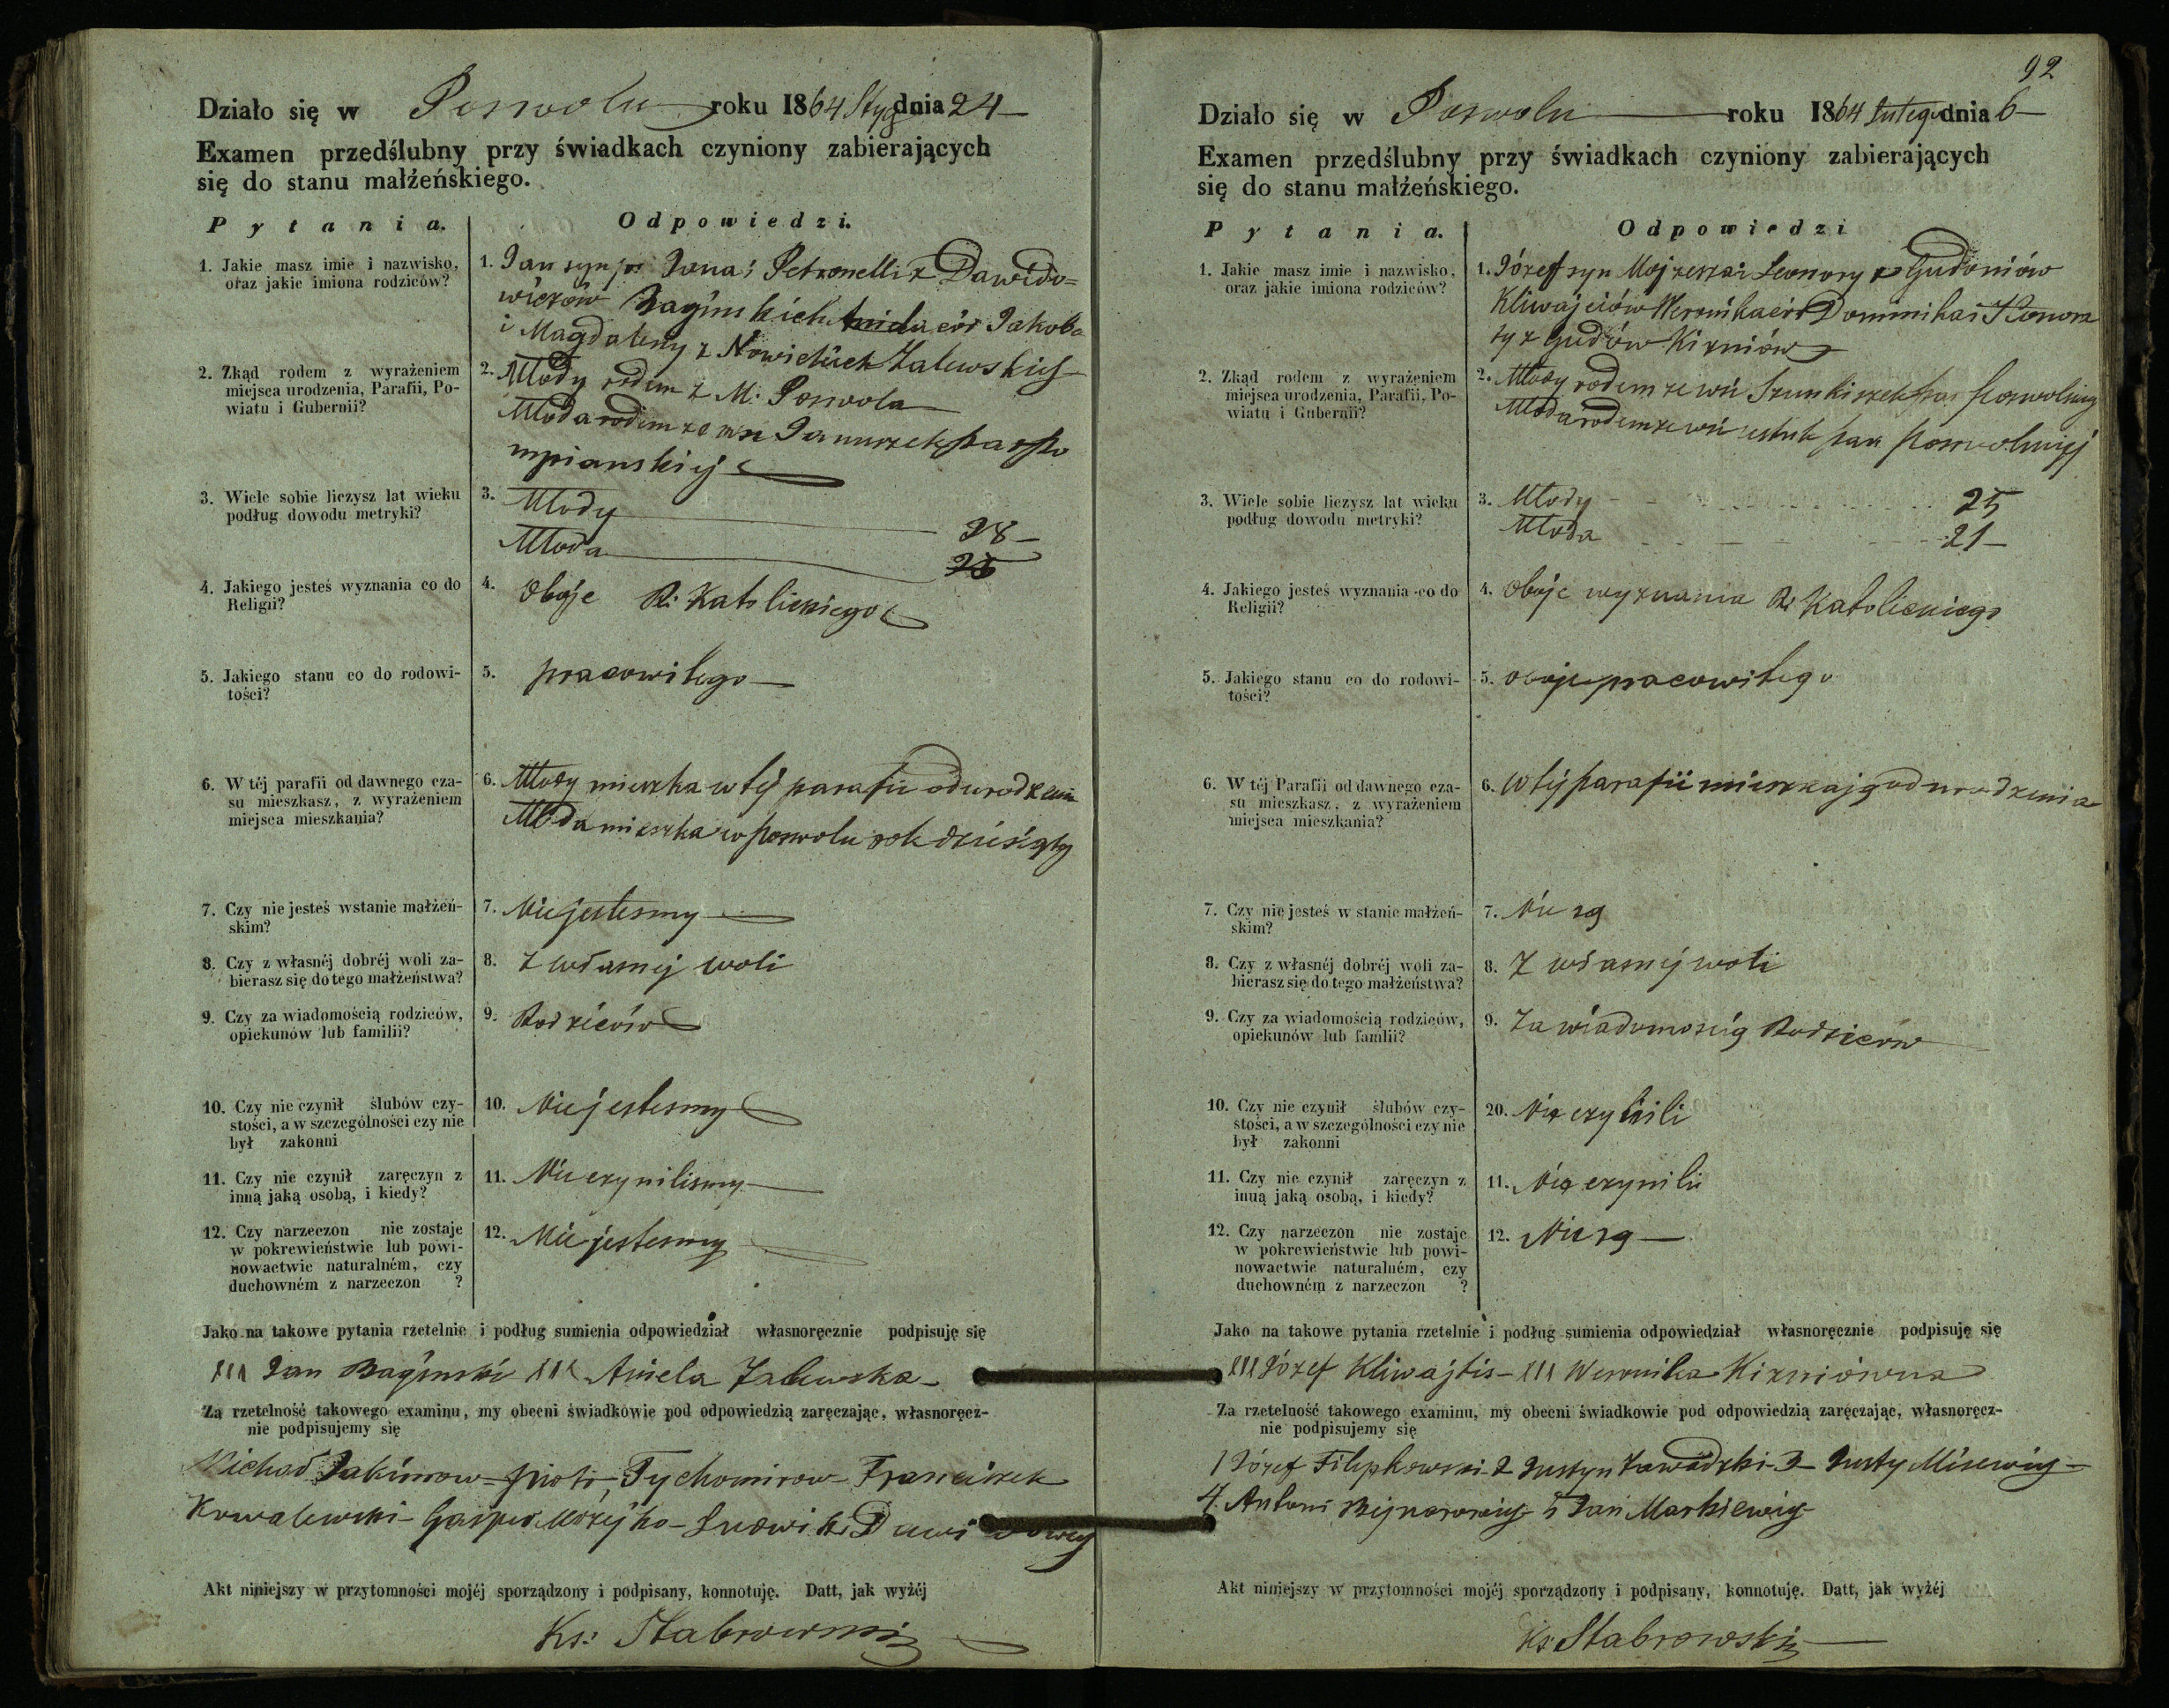 Działo się w Poswolu roku 1864 Stycz dnia 24
Examen przedślubny przy świadkach czyniony zabierających
się do stanu małżeńskiego.
Pytania. Odpowiedzi.
1. Jakie masz imie i nazwisko,
oraz jakie imiona rodziców?
1. Jan syn Jana i Petronelli z Dawido=
wiczów Bagińskich cór Jakoba
i Magdaleny z Nowickich Zalewskich
2. Zkąd rodem z wyrażeniem
miejsca urodzenia, Parafii, Po-
wiatu i Gubernii?
2. Młody rodem z M: Poswola
Młoda rodem ze wsi par Po
mpianskiej
3. Wiele sobie liczysz lat wieku
podług dowodu metryki?
3. Młody 28
Młoda
4. Jakiego jesteś wyznania co do
Religii?
4. Oboje R: Katolickiego
5. Jakiego stanu co do rodowi-
tości?
5. pracowitego
6. W téj parafii od dawnego cza-
su mieszkasz, z wyrażeniem
miejsca mieszkania?
6. Młody mieszka w tej parafii od urodzenia
Młoda mieszka w Poswolu rok dziesiąty
7. Czy nie jesteś wstanie małżeń-
skim?
7. Nie jestesmy
8. Czy z własnéj dobréj woli za-
bierasz się do tego małżeństwa?
8. Z własnej woli
9. Czy za wiadomością rodziców,
opiekunów lub familii?
9. Rodziców
10. Czy nie czynił ślubów czy-
stości, a w szczególności czy nie
był zakonni
10. Nie jestesmy
11. Czy nie czynił zaręczyn z
inną jaką osobą, i kiedy?
11. Nie czynilismy
12. Czy narzeczon nie zostaje
w pokrewieństwie lub powi-
nowactwie naturalném, czy
duchowném z narzeczon ?
12. Nie jestesmy
Jako na takowe pytania rzetelnie i podług sumienia odpowiedział własnoręcznie podpisuję się
XXX Jan Bagiński XXX Aniela Zalewska
Za rzetelność takowego examinu, my obecni świadkowie pod odpowiedzią zaręczając, własnoręcz-
nie podpisujemy się
Michał Jakimow - Piotr Tychomirow - Franciszek
Kowalewski - Gasper Możejko - Ludwik Dawidowicz
Akt niniejszy w przytomności mojéj sporządzony i podpisany, konnotuję. Datt, jak wyżéj
Ks: Stabrowski
92
Działo się w Poswolu roku 1864 Lutego dnia 6
Examen przedślubny przy świadkach czyniony zabierających
się do stanu małżeńskiego.
Pytania. Odpowiedzi
1. Jakie masz imie i nazwisko,
oraz jakie imiona rodziców?
1. Józef syn Mojzesza i Leonory z Gudoniów
Kliwajciów Weronika cór Dominika i Honora
ty z Gudów Kizniów
2. Zkąd rodem z wyrażeniem
miejsca urodzenia, Parafii, Po-
wiatu i Gubernii?
2. Młody rodem ze wsi par Poswolskiej
Młoda rodem ze wsi par Poswolskiej
3. Wiele sobie liczysz lat wieku
podług dowodu metryki?
3. Młody 25
Młoda 21
4. Jakiego jesteś wyznania co do
Religii?
4. Oboje wyznania R: Katolickiego
5. Jakiego stanu co do rodowi-
tości?
5. oboje pracowitego
6. W téj Parafii od dawnego cza-
su mieszkasz, z wyrażeniem
miejsca mieszkania?
6. W tej parafii mieszkają od urodzenia
7. Czy nie jesteś w stanie małżeń-
skim?
7. Nie są
8. Czy z własnéj dobréj woli za-
bierasz się do tego małżeństwa?
8. Z własnej woli
9. Czy za wiadomością rodziców,
opiekunów lub famlii?
9. Za wiadomością Rodziców
10. Czy nie czynił ślubów czy-
stości, a w szczególności czy nie
był zakonni
20. Nie czynili
11. Czy nie czynił zaręczyn z
inuą jaką osobą, i kiedy?
11. Nie czynili
12. Czy narzeczon nie zostaje
w pokrewieństwie lub powi-
nowactwie naturalném, czy
duchowném z narzeczon ?
12. Nie są
Jako na takowe pytania rzetelnie i podług sumienia odpowiedział własnoręcznie podpisuję się
XXX Józef Kliwajtis - XXX Weronika Kizniówna
Za rzetelność takowego examinu, my obecni świadkowie pod odpowiedzią zaręczając, własnoręcz-
nie podpisujemy się
1 Józef Filipkowski 2 Justyn Zawadzki 3 Justy Misewicz
4. Antoni Bejnarowicz 5 Jan Markiewicz
Akt niniejszy w przytomności mojéj sporządzony i podpisany, konnotuję. Datt, jak wyżéj
Ks: Stabrowski